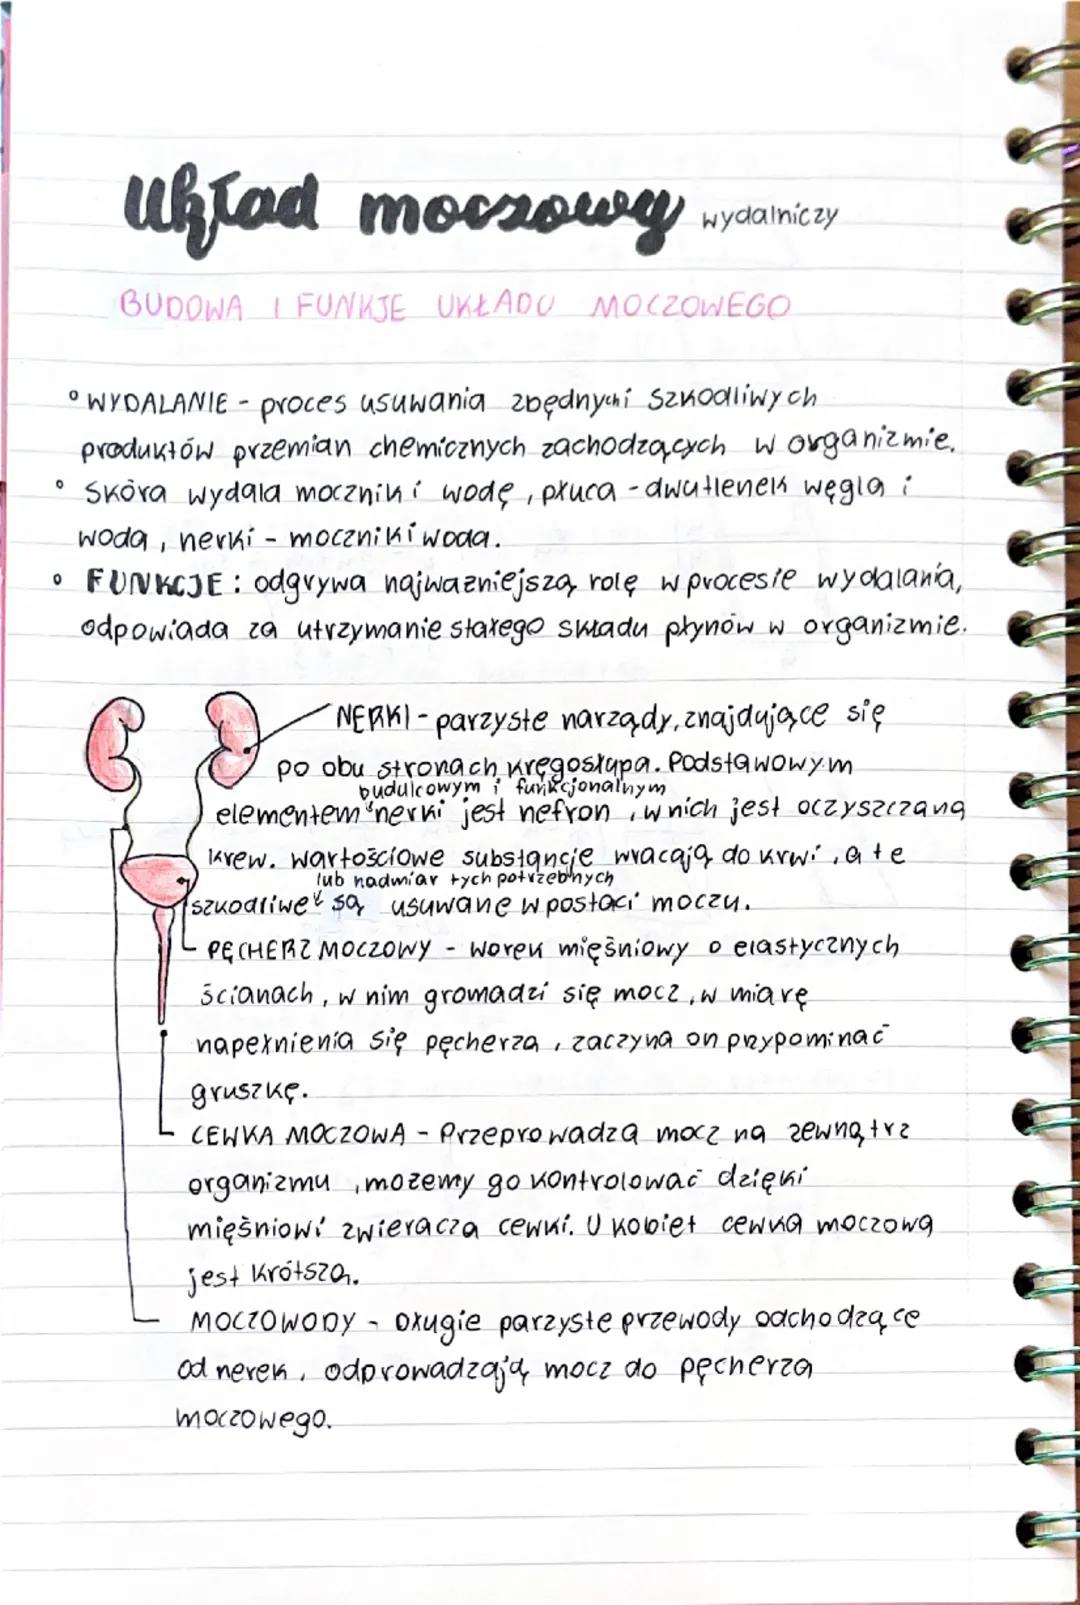 Układ moczowy wydalniczy
BUDOWA I FUNKJE UKŁADU MOCZOWEGO
° WYDALANIE - proces usuwania zbędnych i szkodliwych
produktów przemian chemicznych zachodzących w organizmie.
° Skóra wydala mocznik i wodę, płuca - dwutlenek węgla i
woda, nerki - mocznik i woda.
° FUNKCJE: odgrywa najważniejszą rolę w procesie wydalania,
odpowiada za utrzymanie stałego składu płynów w organizmie.
NERKI - parzyste narządy, znajdujące się
po obu stronach kręgosłupa. Podstawowym
budulcowym i funkcjonalnym
elementem nerki jest nefron, w nich jest oczyszczana
krew. Wartościowe substancje wracają do krwi, a te
lub nadmiar tych potrzebnych
szkodliwe są usuwane w postaci moczu.
PĘCHERZ MOCZOWY - worek mięśniowy o elastycznych
ścianach, w nim gromadzi się mocz, w miarę
napełnienia się pęcherza, zaczyna on przypominać
gruszkę.
CEWKA MOCZOWA - Przeprowadza mocz na zewnątrz
organizmu, możemy go kontrolować dzięki
mięśniowi zwieracza cewki. U kobiet cewka moczowa
jest krótsza.
MOCZOWODY - Długie parzyste przewody odchodzące
od nerek, odprowadzają mocz do pęcherza
moczowego.